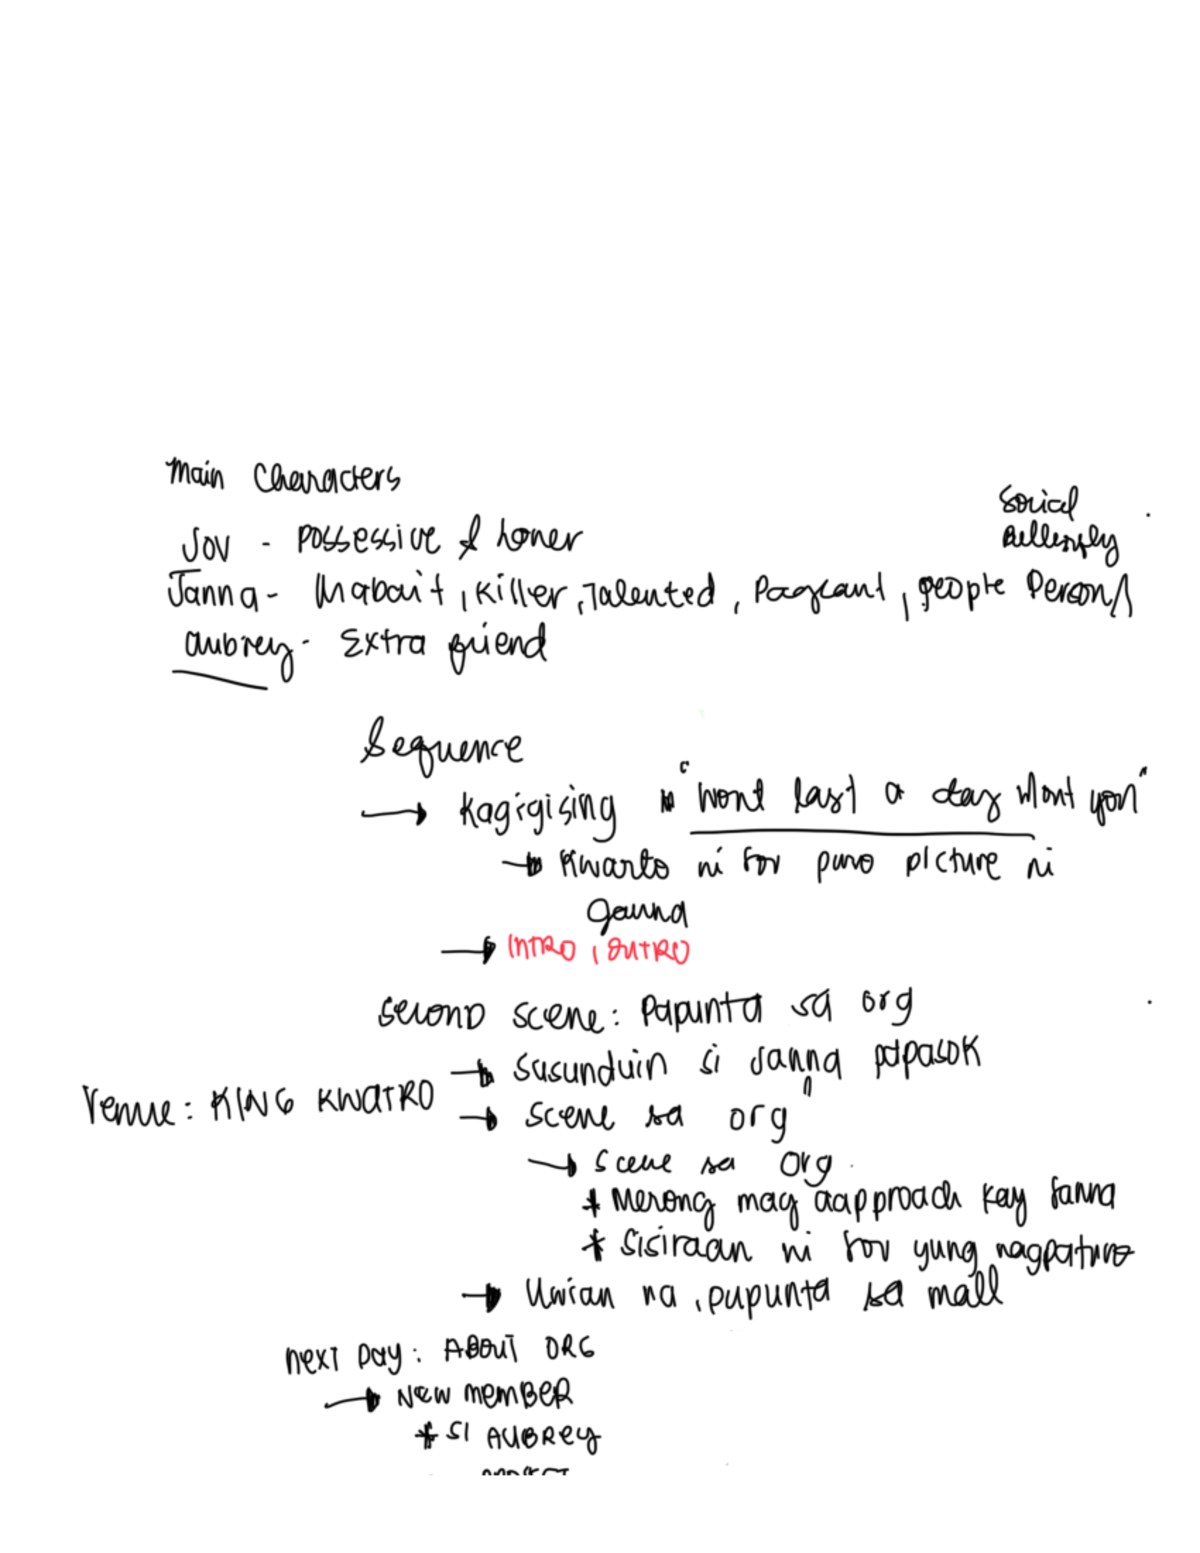 Main Characters
Social
Jov - Possessive & loner
Butterfly
Janna - Mabait, Killer, Talented, Pageant, people Person
Aubrey - Extra friend
Sequence
→ Kagigising "wont last a day whout you"
→ Kwarto ni Jov puro picture ni
Janna
→ INTRO, OUTRO
Second scene: Papunta sa org
→ Susunduin si Janna papasok
Venue: KING KWATRO
→ Scene sa org
→ Scene sa org
* Merong mag aapproach kay Janna
* Sisiraan ni Jov yung nagpaturo
→ Uwian na, pupunta sa mall
next Day: ABOUT ORG
→ NEW MEMBER
* SI AUBREY